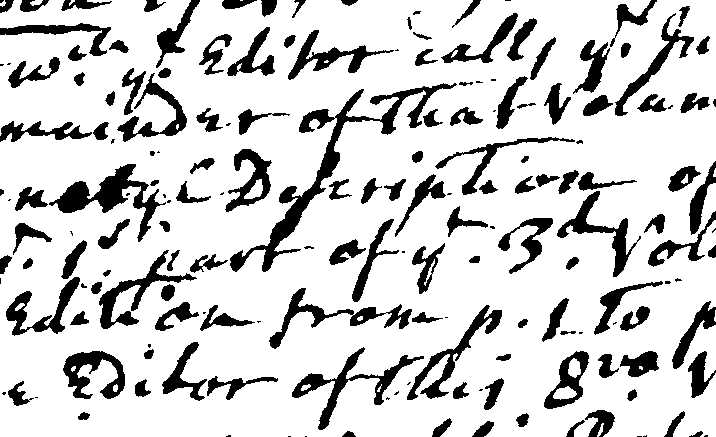 wth. ye. Editor calls ye. In
mainder of that Volum
Description of
ye. 1st. part of ye. 3d. Vol
Edition from p. 1 to p
e Editor of this 8vo. V